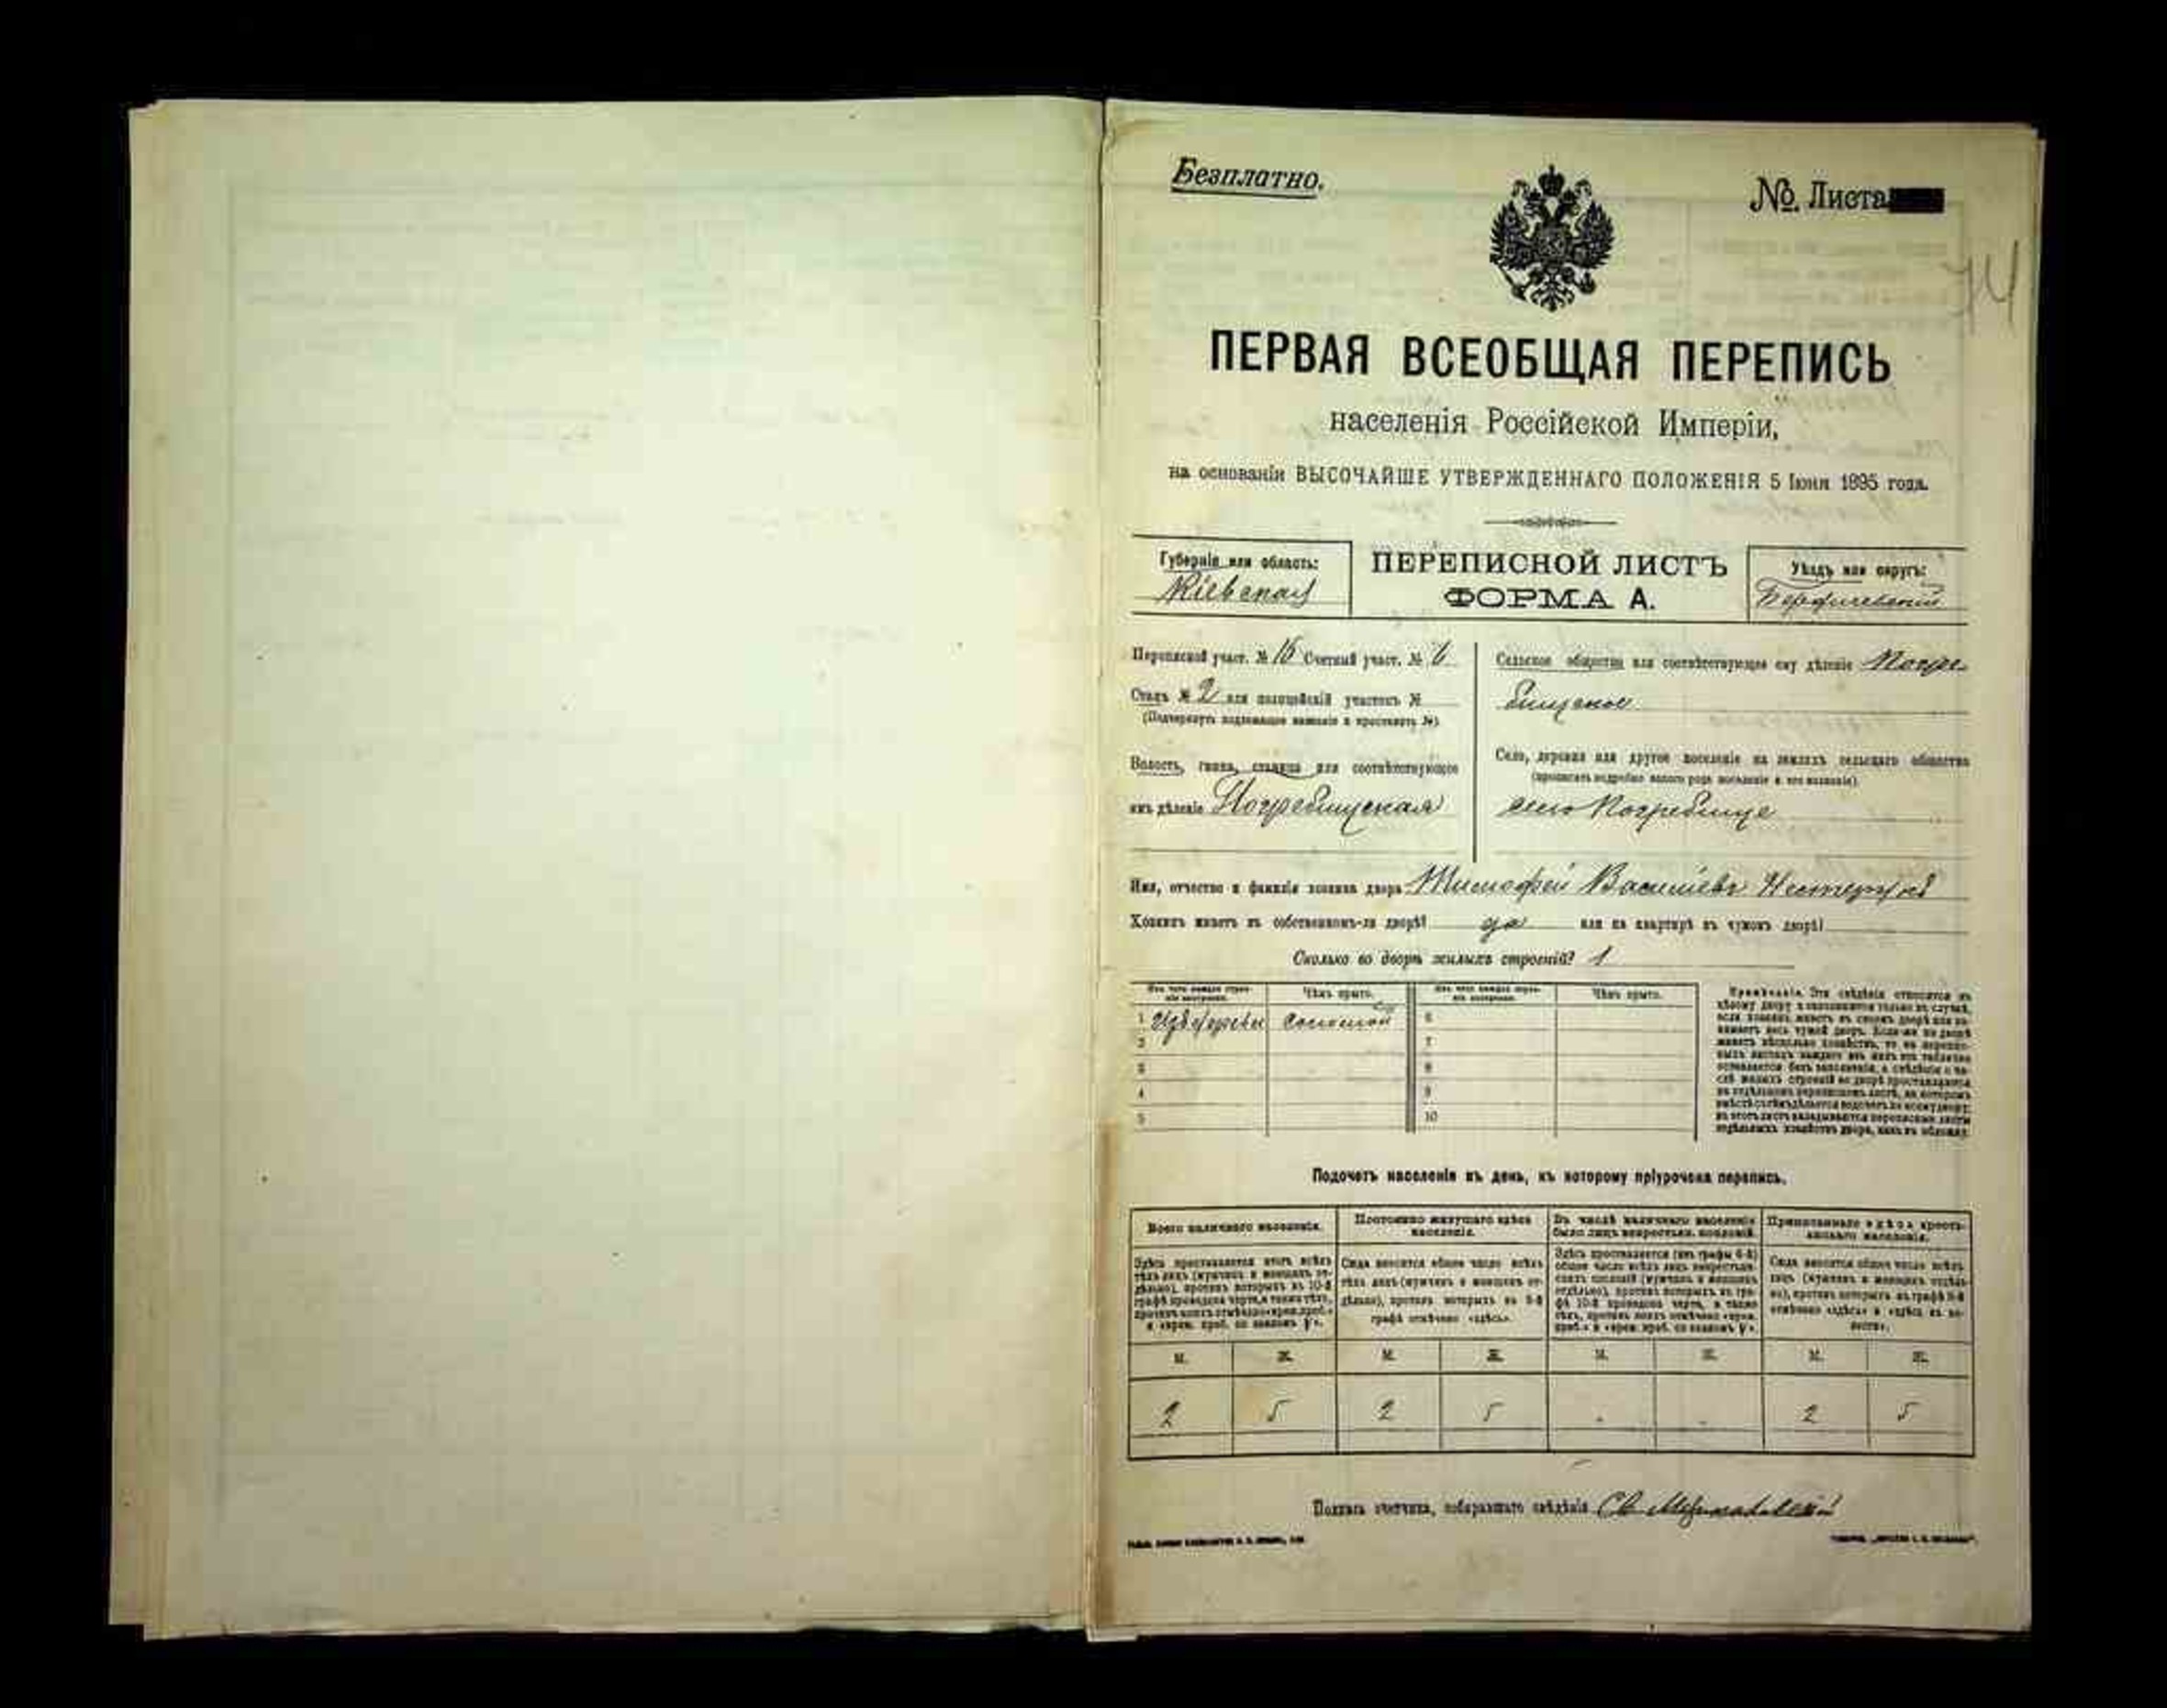 Безплатно.
№. Листа
74
ПЕРВАЯ ВСЕОБЩАЯ ПЕРЕПИСЬ
населенія Россійской Имперіи,
на основаніи ВЫСОЧАЙШЕ УТВЕРЖДЕННАГО ПОЛОЖЕНІЯ 5 Іюня 1895 года.
Губернія или область:
Кіевская
ПЕРЕПИСНОЙ ЛИСТЪ
ФОРМА А.
Уѣздъ или округъ:
Бердичевскій
Переписной участ. № 15 Счетный участ. № 6
Станъ № 2 или полицейскій участокъ №
(Подчеркнуть подлежащее названіе и проставить №)
Волость, гмина, станица или соотвѣтствующее
имъ дѣленіе Погребищская
Сельское общество или соотвѣтствующее ему дѣленіе Погре
бищское
Село, деревня или другое поселеніе на земляхъ сельскаго общества
(прописать подробно какого рода поселеніе и его названіе)
село Погребище
Имя, отчество и фамилія хозяина двора Тимофей Василіевъ Нестерукъ
Хозяинъ живетъ въ собственномъ-ли дворѣ? да или на квартирѣ въ чужомъ дворѣ?
Сколько во дворѣ жилыхъ строеній? 1
Изъ чего каждое строеніе построено.
Чѣмъ крыто.
Изъ чего каждое строеніе построено.
Чѣмъ крыто.
1 Изъ дерева соломой 6
2 7
3 8
4 9
5 10
Примѣчаніе. Эти свѣдѣнія относятся къ
цѣлому двору и заполняются только въ случаѣ,
если хозяинъ живетъ въ своемъ дворѣ или за-
нимаетъ весь чужой дворъ. Если-же во дворѣ
живетъ нѣсколько хозяйствъ, то на перепис-
ныхъ листахъ каждаго изъ нихъ эта табличка
оставляется безъ заполненія, а свѣдѣнія о чи-
слѣ жилыхъ строеній во дворѣ проставляются
на отдѣльномъ переписномъ листѣ, на которомъ
вмѣстѣ съ тѣмъ дѣлается подсчетъ по всему двору;
въ этотъ листъ вкладываются переписные листы
отдѣльныхъ хозяйствъ двора, какъ въ обложку.
Подсчетъ населенія въ день, къ которому пріурочена перепись.
Всего наличнаго населенія.
Постоянно живущаго здѣсь населенія.
Въ числѣ наличнаго населенія было лицъ некрестьян. сословій.
Приписаннаго здѣсь крестьянскаго населенія.
Здѣсь проставляется итогъ всѣхъ
тѣхъ лицъ (мужчинъ и женщинъ от-
дѣльно), противъ которыхъ въ 10-й
графѣ проведена черта, а также тѣхъ,
противъ коихъ отмѣчено «врем. преб.»
Сюда вносится общее число всѣхъ
тѣхъ лицъ (мужчинъ и женщинъ от-
дѣльно), противъ которыхъ въ 9-й
графѣ отмѣчено «здѣсь».
Здѣсь проставляется (изъ графы 6-й)
общее число всѣхъ лицъ некрестьян-
скихъ сословій (мужчинъ и женщинъ
отдѣльно), противъ которыхъ въ гра-
фѣ 10-й проведена черта, а также
Сюда вносится общее число всѣхъ
лицъ (мужчинъ и женщинъ отдѣль-
но), противъ которыхъ въ графѣ 8-й
отмѣчено «здѣсь» и «здѣсь въ во-
лости».
М. Ж. М. Ж. М. Ж. М. Ж.
2 5 2 5 - - 2 5
Подпись счетчика, собиравшаго свѣдѣнія